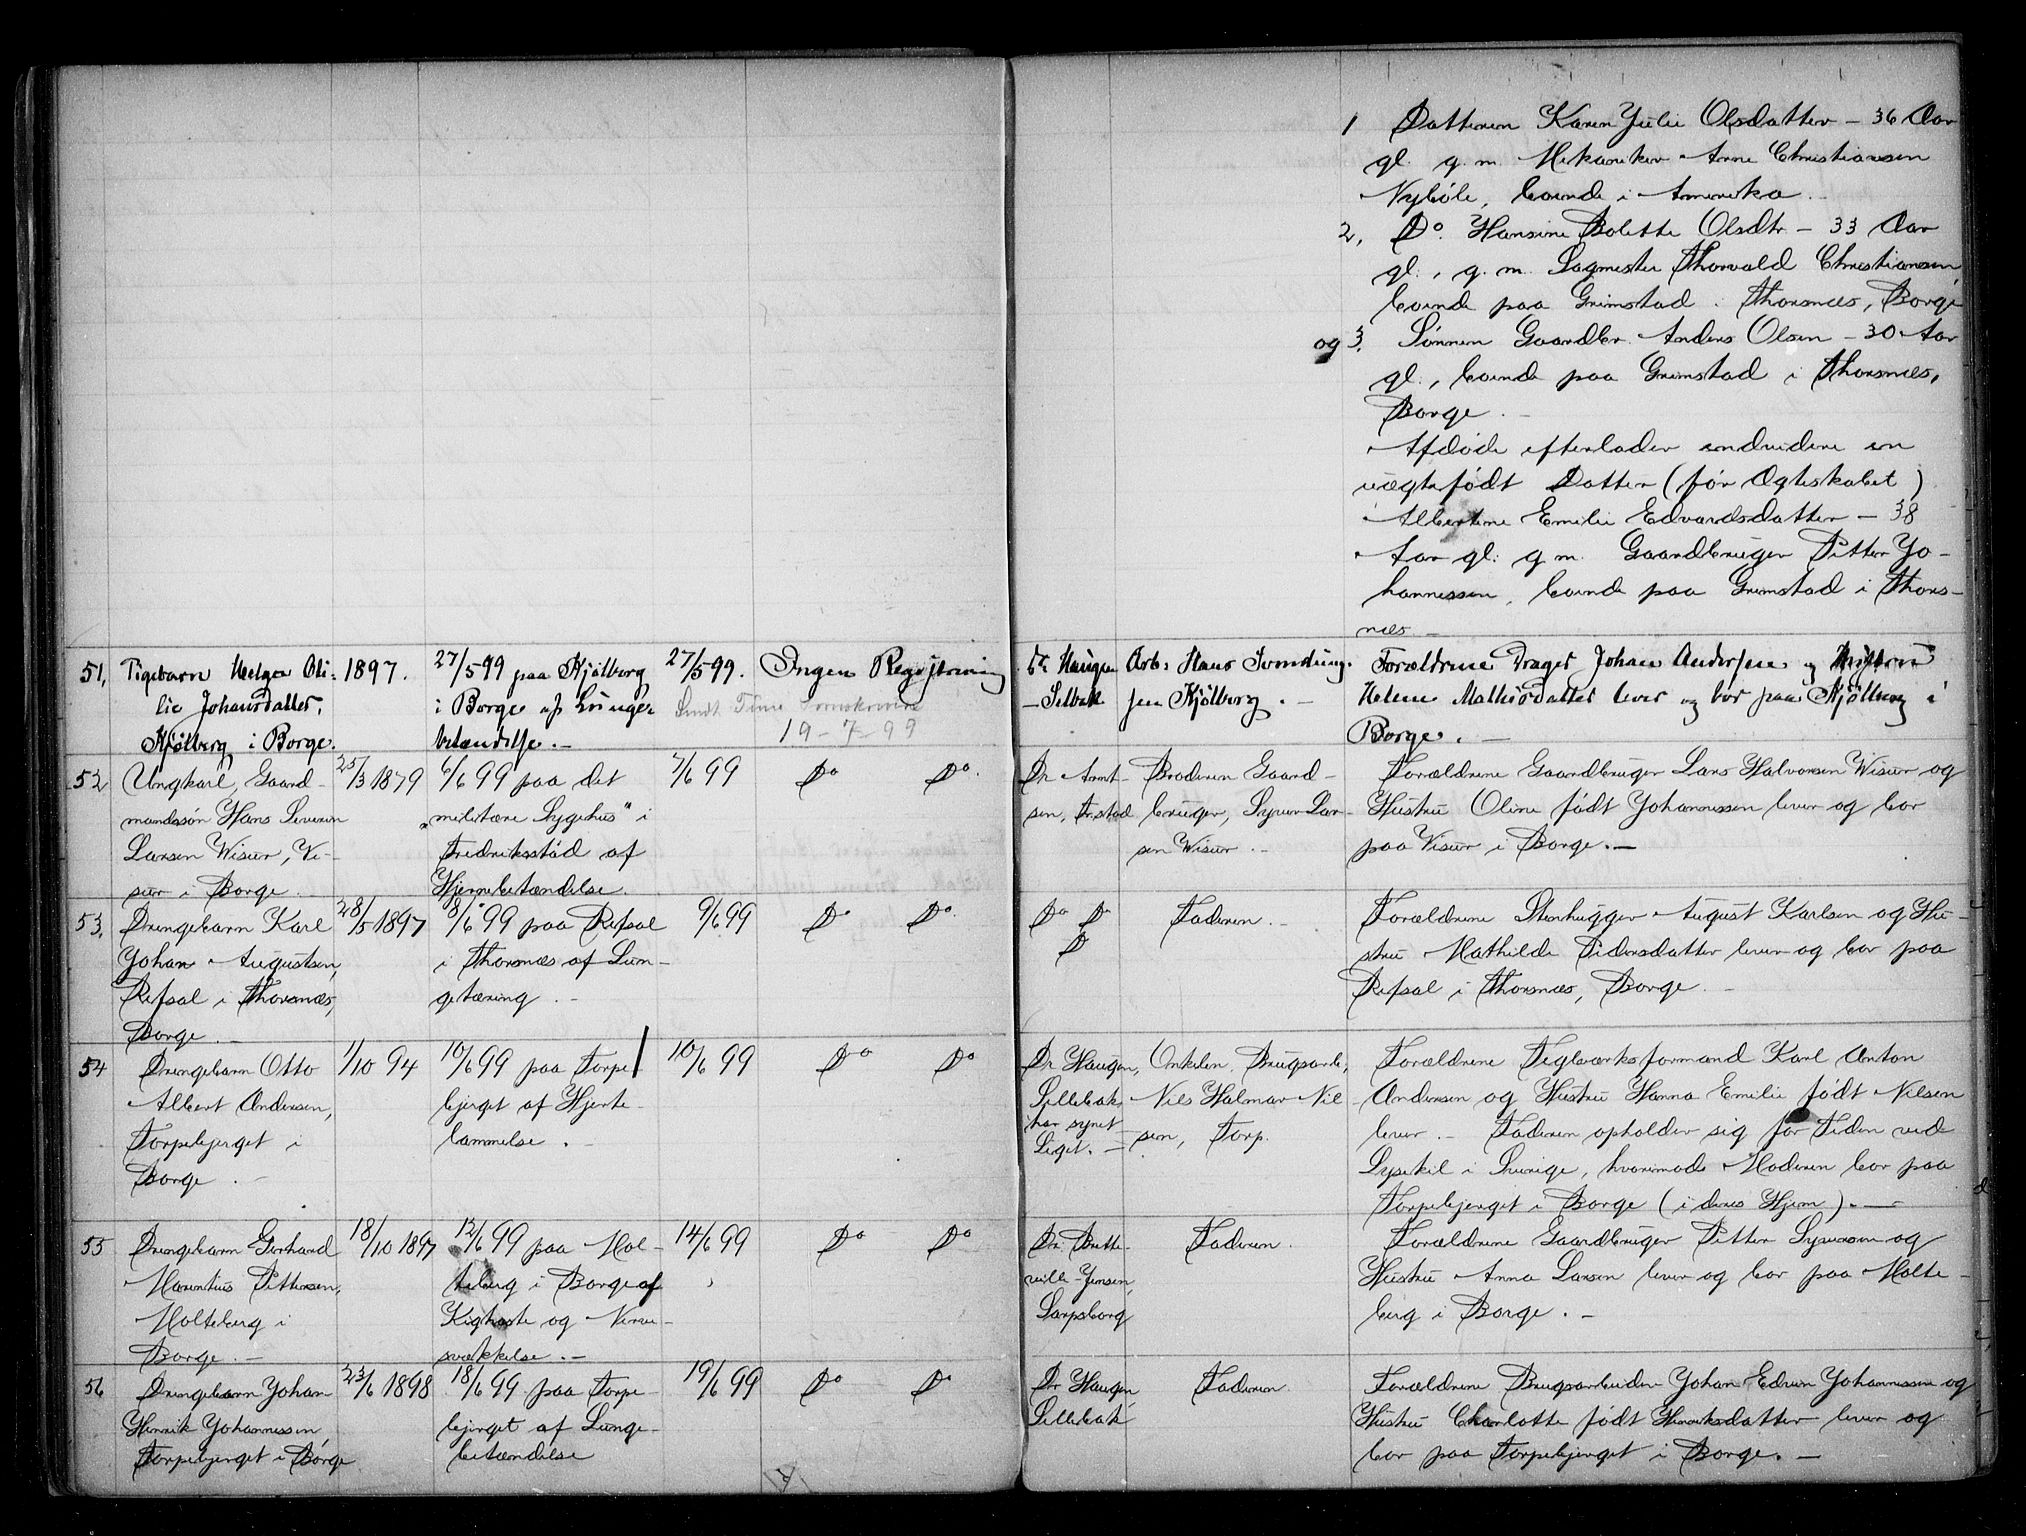 1 Datteren Karen Julie Olsdatter – 36 Aar
gl. g. m. Mekaniker Arne Christiansen
Nyböle, boende i Amerika.
2, Do. Hansine Bolette Olsdtr – 33 Aar
gl., g. m. Sagmester Thorvald Christiansen
boende paa Grimstad i Thorsnæs, Borge
og 3. Sønnen Gaardbr. Anders Olsen – 30 Aar
gl., boende paa Grimstad i Thorsnæs,
Borge. –
Afdøde efterlader endvidere en
uægtefødt Datter (før Ægteskabet)
Albertine Emilie Edvardsdatter – 38
Aar gl. g. m. Gaardbruger Petter Jo-
hannessen, boende paa Grimstad i Thors-
næs –
51, Pigebarn Helga Oli-
lie Johansdatter,
Kjølberg i Borge.
1897.
27/5 99 paa Kjølberg
i Borge af Lunge-
betændelse. –
27/5 99.
Ingen Registrering
Sendt Tune Sorenskriveri
19-7-99
Dr. Haugen
– Selbak
Arb: Hans Svendsen.
Kjølberg. –
Forældrene Drager Johan Andersen og Hustru
Helene Mathisdatter lever og bor paa Kjølberg i
Borge. –
52 Ungkarl, Gaard-
mandssøn Hans Severin
Larsen Wisur, Vi-
sur i Borge.
25/3 1879
6/6 99 paa det
„militære Sygehus" i
Fredrikstad af
Hjernebetændelse.
7/6 99
Do Do.
Dr Arnt-
sen, Frstad
Broderen Gaard-
bruger, Syver Lar-
sen Wisur. –
Forældrene Gaardbruger Lars Halvorsen Wisur og
Hustru Oline født Johannessen lever og bor
paa Visur i Borge. –
53, Drengebarn Karl
Johan Augustsen,
Refsal i Thorsnæs,
Borge. –
28/5 1897
8/6 99 paa Refsal
i Thorsnæs af Lun-
getæring. –
9/6 99
Do Do.
Do Do
D
Faderen. –
Forældrene Stenhugger August Karlsen og Hu-
stru Mathilde Pedersdatter lever og bor paa
Refsal i Thorsnæs, Borge. –
54 Drengebarn Otto
Albert Andersen,
Torpebjerget i
Borge. –
1/10 94
10/6 99 paa Torpe
bjerget af Hjerte-
lammelse. –
10/6 99
Do Do
Dr Haugen,
Sellebak
har synet
Liget. –
Onkelen, Brugsarb.,
Nils Halmar Nil-
sen, Torp.
Forældrene Teglværksformand Karl Anton
Andersen og Hustru Hanna Emilie født Nilsen
lever. – Faderen opholder sig for Tiden ved
Lysekil i Sverige, hvorimod Moderen bor paa
Torpebjerget i Borge (i deres Hjem). –
55 Drengebarn Gerhard
Marentius Pettersen,
Molteberg i
Borge. –
18/10 1897
12/6 99 paa Mol-
teberg i Borge af
Kighoste og Nerve-
svækkelse. –
14/6 99
Do Do
Dr. Brette-
ville-Jensen,
Sarpsborg
Faderen.
Forældrene Gaardbruger Petter Syversen og
Hustru Anna Larsen lever og bor paa Molte-
berg i Borge. –
56 Drengebarn Johan
Henrik Johannessen,
Torpebjerget i Borge
23/6 1898
18/6 99 paa Torpe-
bjerget af Lunge-
betændelse
19/6 99
Do Do
Dr Haugen
Sellebak
Faderen.
Forældrene Brugsarbeider Johan Edvin Johannessen og
Hustru Charlotte født Henriksdatter lever og
bor paa Torpebjerget i Borge. –